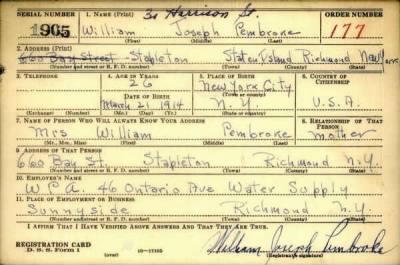 30 Harrison St.
SERIAL NUMBER 1. NAME (Print) ORDER NUMBER
1905 William Joseph Pembroke 177
(First) (Middle) (Last)
2. ADDRESS (Print)
660 Bay Street - Stapleton Staten Island Richmond
(Number and street or R. F. D. number) (Town) (County) (State)
3. TELEPHONE 4. AGE IN YEARS 5. PLACE OF BIRTH 6. COUNTRY OF CITIZENSHIP
26 New York City
DATE OF BIRTH (Town or county)
March 21 1914 N.Y. U.S.A.
(Exchange) (Number) (Mo.) (Day) (Yr.) (State or country)
7. NAME OF PERSON WHO WILL ALWAYS KNOW YOUR ADDRESS 8. RELATIONSHIP OF THAT PERSON
Mrs William Pembroke mother
(Mr., Mrs., Miss) (First) (Middle) (Last)
9. ADDRESS OF THAT PERSON
660 Bay St. Stapleton Richmond N.Y.
(Number and street or R. F. D. number) (Town) (County) (State)
10. EMPLOYER'S NAME
W.P.A. 46 Ontario Ave Water Supply
11. PLACE OF EMPLOYMENT OR BUSINESS
Sunnyside Richmond N.Y.
(Number and street or R. F. D. number) (Town) (County) (State)
I AFFIRM THAT I HAVE VERIFIED ABOVE ANSWERS AND THAT THEY ARE TRUE.
REGISTRATION CARD
D. S. S. Form 1 William Joseph Pembroke
(Registrant's signature)